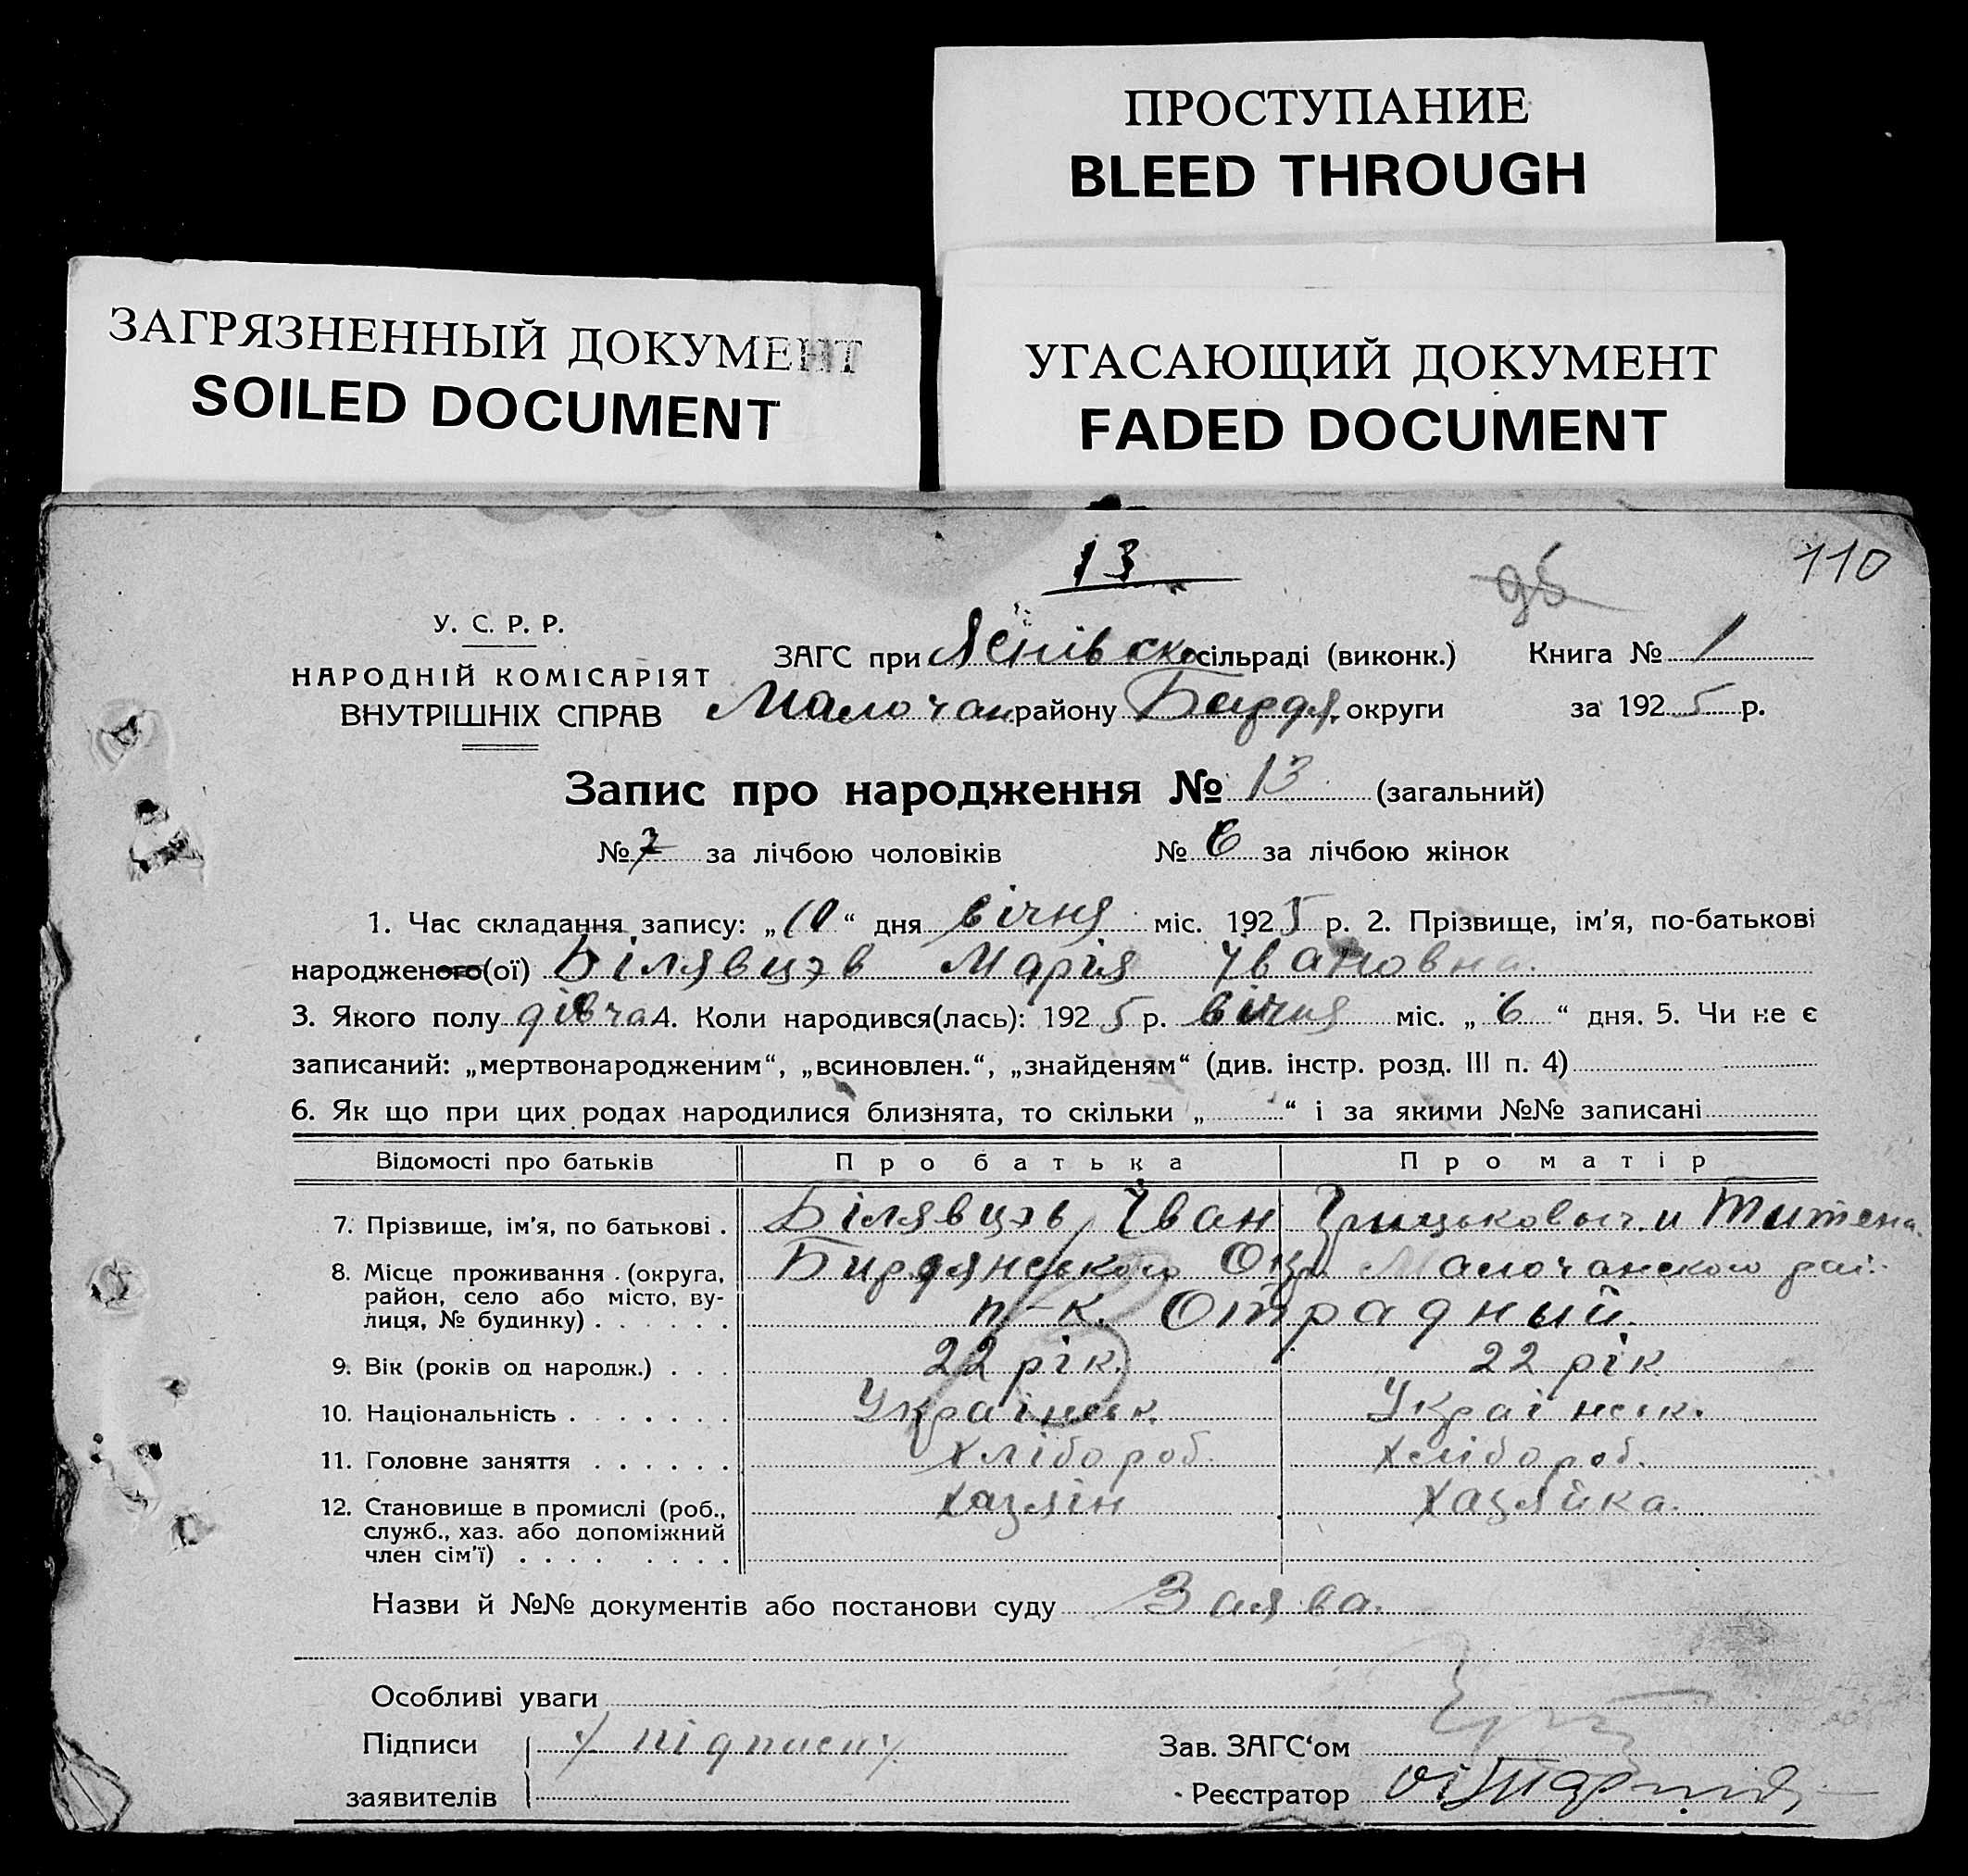 ПРОСТУПАНИЕ
BLEED THROUGH
ЗАГРЯЗНЕННЫЙ ДОКУМЕНТ
SOILED DOCUMENT
УГАСАЮЩИЙ ДОКУМЕНТ
FADED DOCUMENT
13
110
У. С. Р. Р.
НАРОДНІЙ КОМІСАРІЯТ
ВНУТРІШНІХ СПРАВ
ЗАГС при сільраді (виконк.) Книга № 1
Малочан району Бердя. округи за 1925 р.
Запис про народження № 13 (загальний)
№ 7 за лічбою чоловіків № 6 за лічбою жінок
1. Час складання запису: „10“ дня січня міс. 1925 р. 2. Прізвище, ім'я, по-батькові
народженого(ої) Білявцэв Марія Івановна.
3. Якого полу дівча 4. Коли народився(лась): 1925 р. січня міс. „6“ дня. 5. Чи не є
записаний: „мертвонародженим“, „всиновлен.“, „знайденям“ (див. інстр. розд. III п. 4)
6. Як що при цих родах народилися близнята, то скільки „ “ і за якими №№ записані
Відомості про батьків Про батька Про матір
7. Прізвище, ім'я, по батькові . Білявцэв Іван Грицькович. и
8. Місце проживання (округа, район, село або місто, вулиця, № будинку) . . . . . . Бирдянського Окр. Малочанского рай.
п-к. Отрадный.
9. Вік (років од народж.) . . . 22 рік. 22 рік
10. Національність . . . . . . . Українськ. Українськ.
11. Головне заняття . . . . . . Хлібороб. Хлібороб.
12. Становище в промислі (роб., служб., хаз. або допоміжний член сім'ї) . . . . . . . . Хазяїн Хазяйка.
Назви й №№ документів або постанови суду Заява.
Особливі уваги
Підписи Зав. ЗАГС'ом
заявителів Реєстратор